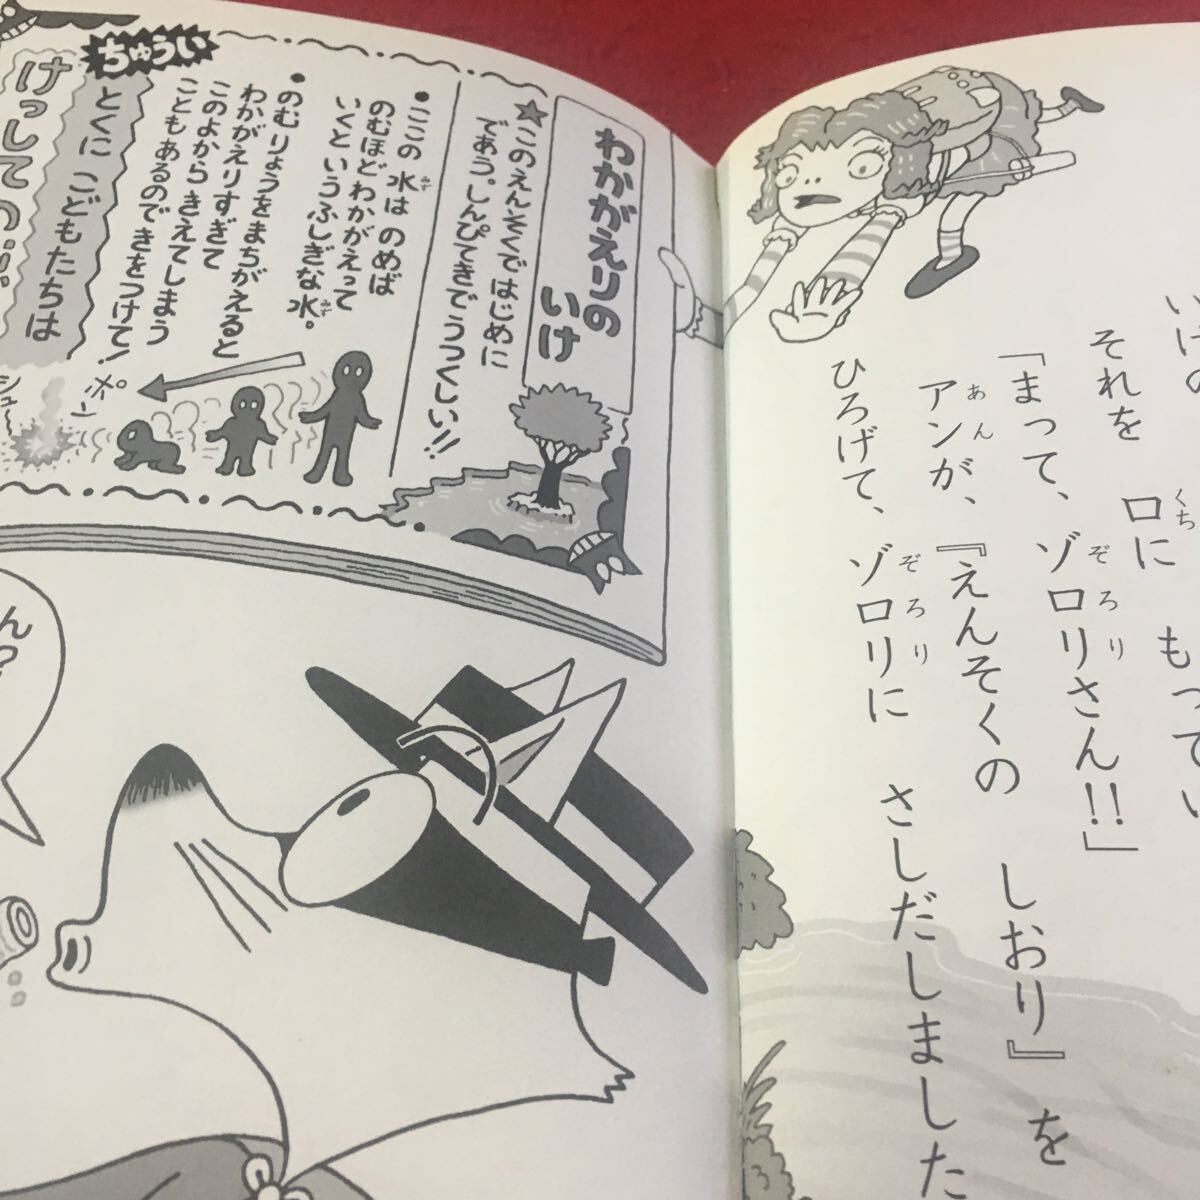 いけの
もってい
それを
口に
くち
「まって、ゾロリさん!!」
ぞろり
アンが、『えんそくの しおり』を
あん
ひろげて、ゾロリに さしだしました
ぞろり
わかがえりの
いけ
★このえんそくで はじめに
であう。しんぴてきで うつくしい!!
・ここの 水は のめば
みず
のむほど わかがえって
いくという ふしぎな水。
みず
・のむりょうをまちがえると
わかがえりすぎて
このよから きえてしまう
こともあるので きをつけて!
ちゅうい
とくに こどもたちは
けっして
ポン
シュ〜
ん?